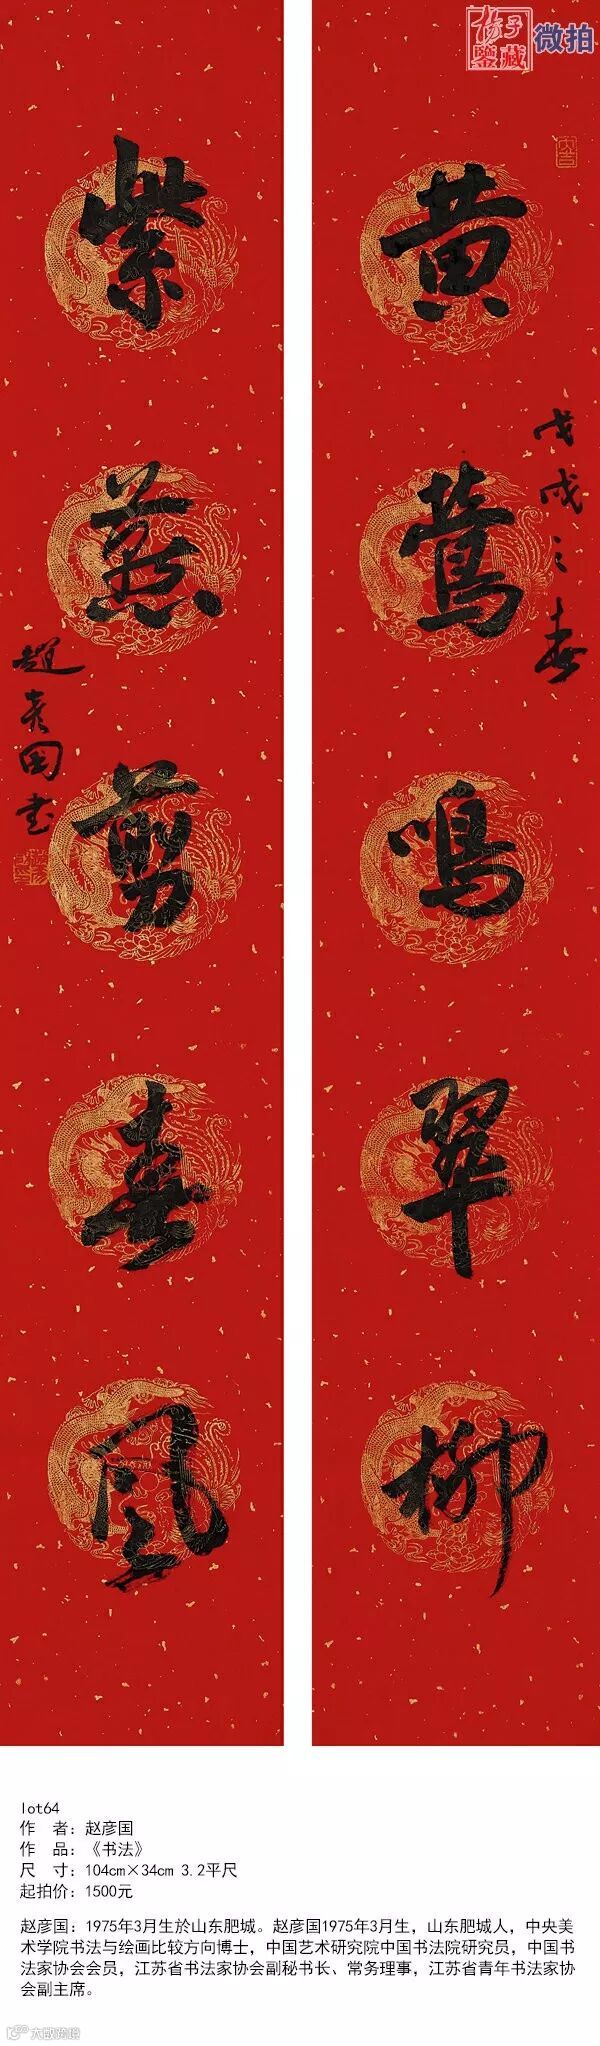 扬子
鉴藏
微拍
黄莺鸣翠柳
戊戌之春
紫燕剪春风
赵彦国书
lot64
作 者：赵彦国
作 品：《书法》
尺 寸：104cm×34cm 3.2平尺
起拍价：1500元
赵彦国：1975年3月生於山东肥城。赵彦国1975年3月生，山东肥城人，中央美
术学院书法与绘画比较方向博士，中国艺术研究院中国书法院研究员，中国书
法家协会会员，江苏省书法家协会副秘书长、常务理事，江苏省青年书法家协
会副主席。
大欧跨境